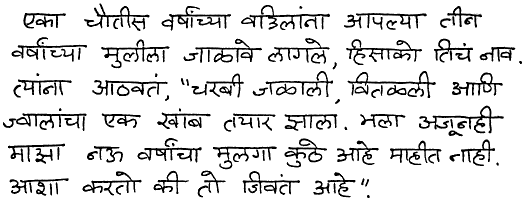 एका चौतीस वर्षाच्या वडिलांना आपल्या तीन
वर्षाच्या मुलीला जाळावे लागले, हिसाको तिचं नाव.
त्यांना आठवतं, "चरबी जळाली, वितळली आणि
ज्वालांचा एक खांब तयार झाला. मला अजूनही
माझा नऊ वर्षांचा मुलगा कुठे आहे माहीत नाही.
आशा करतो की तो जिवंत आहे".